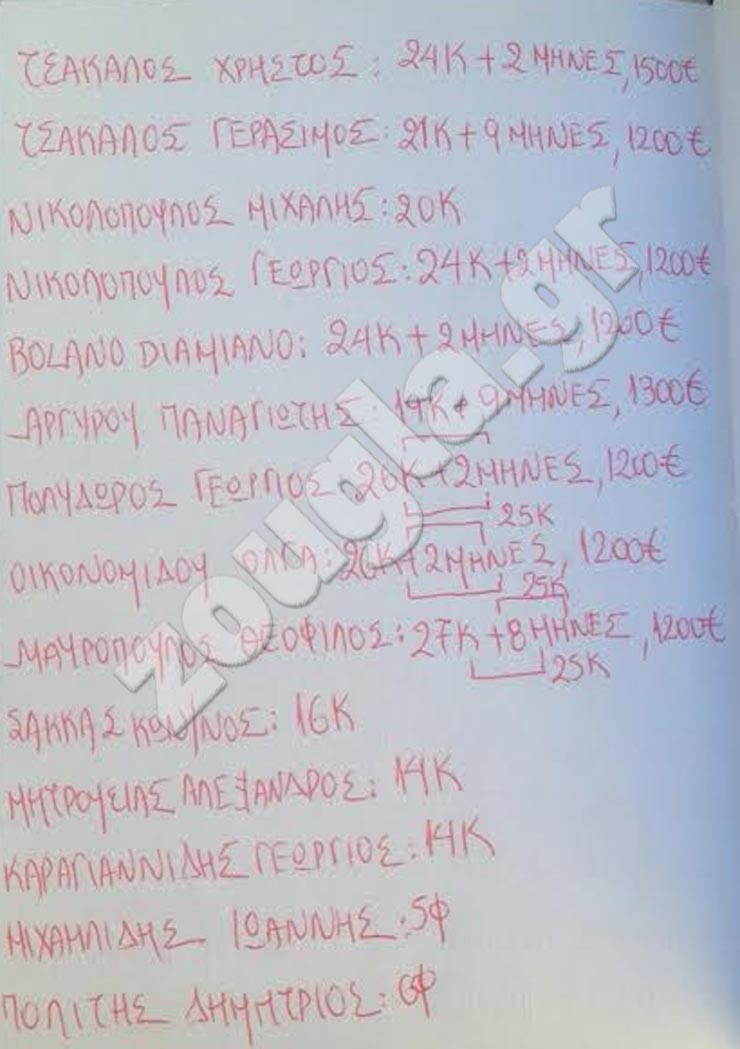 ΤΣΑΚΑΛΟΣ ΧΡΗΣΤΟΣ: 24Κ + 2 ΜΗΝΕΣ, 1500€
ΤΣΑΚΑΛΟΣ ΓΕΡΑΣΙΜΟΣ: 21Κ + 9 ΜΗΝΕΣ, 1200€
ΝΙΚΟΛΟΠΟΥΛΟΣ ΜΙΧΑΛΗΣ: 20Κ
ΝΙΚΟΛΟΠΟΥΛΟΣ ΓΕΩΡΓΙΟΣ: 24Κ + 2 ΜΗΝΕΣ, 1200€
BOLANO DIAMIANO: 24Κ + 2 ΜΗΝΕΣ, 1200€
ΑΡΓΥΡΟΥ ΠΑΝΑΓΙΩΤΗΣ: 19Κ + 9 ΜΗΝΕΣ, 1300€
ΠΟΛΥΔΩΡΟΣ ΓΕΩΡΓΙΟΣ: 26Κ + 2 ΜΗΝΕΣ, 1200€
25Κ
ΟΙΚΟΝΟΜΙΔΟΥ ΟΛΓΑ: 26Κ + 2 ΜΗΝΕΣ, 1200€
25Κ
ΜΑΥΡΟΠΟΥΛΟΣ ΘΕΟΦΙΛΟΣ: 27Κ + 8 ΜΗΝΕΣ, 1200€
25Κ
ΣΑΚΚΑΣ : 16Κ
ΜΗΤΡΟΥΣΙΑΣ ΑΛΕΞΑΝΔΡΟΣ: 14Κ
ΚΑΡΑΓΙΑΝΝΙΔΗΣ ΓΕΩΡΓΙΟΣ: 14Κ
ΜΙΧΑΗΛΙΔΗΣ ΙΩΑΝΝΗΣ: 5Φ
ΠΟΛΙΤΗΣ ΔΗΜΗΤΡΙΟΣ: 6Φ
zougla.gr